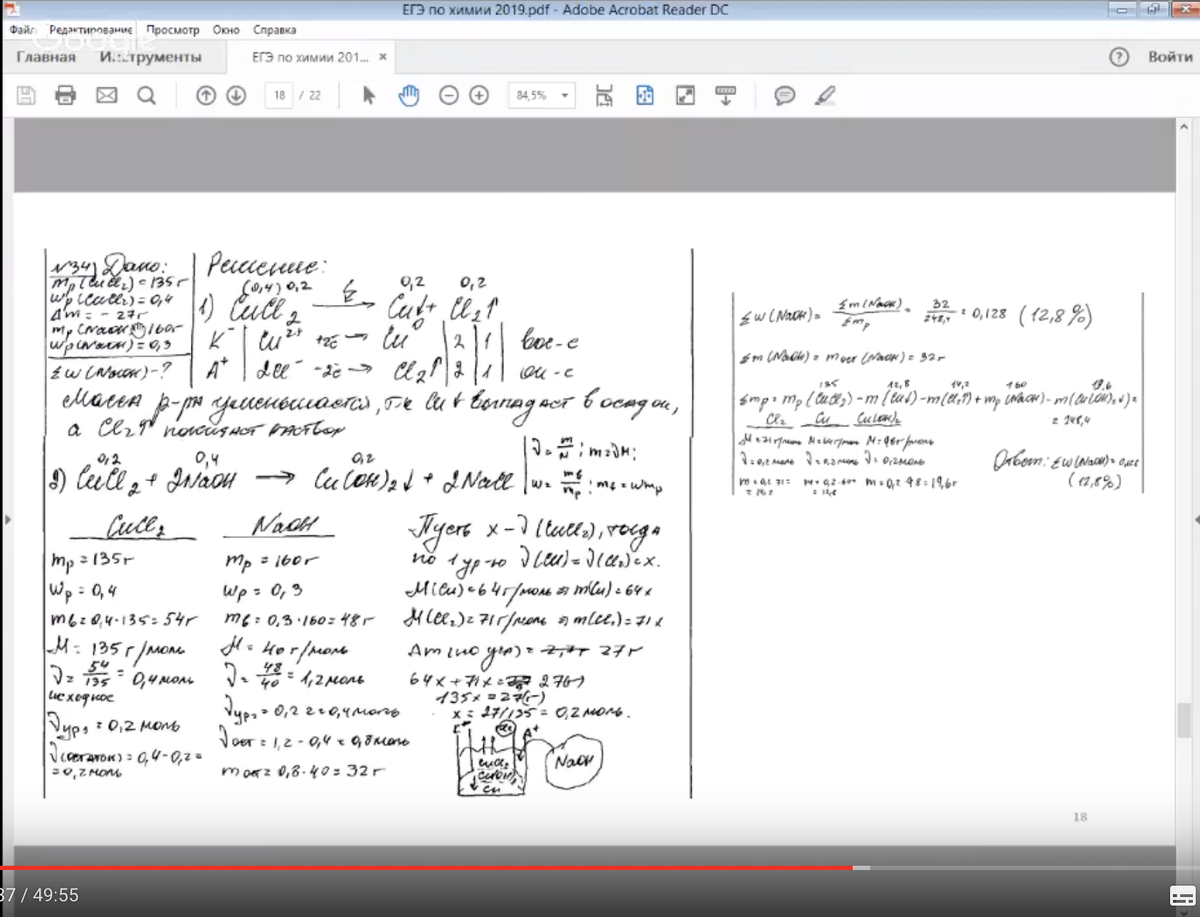 ЕГЭ по химии 2019.pdf - Adobe Acrobat Reader DC
Файл Редактирование Просмотр Окно Справка
Google
Главная Инструменты ЕГЭ по химии 201... × ? Войти
18 / 22 84,5%
№34) Дано:
mр(CuCl₂)=135г
wр(CuCl₂)=0,4
Δm = - 27г
mр(NaOH)=160г
wр(NaOH)=0,3
Σw(NaOH)-?
Решение:
(0,4) 0,2 0,2 0,2
1) CuCl₂ → Cu↓ + Cl₂↑
K⁻ | Cu²⁺ +2ē → Cu⁰ | 2 | 1 | вос-с
A⁺ | 2Cl⁻ -2ē → Cl₂↑ | 2 | 1 | ок-с
Масса р-ра уменьшается, т.к Cu↓ выпадает в осадок,
а Cl₂↑ покидает раствор
0,2 0,4 0,2
2) CuCl₂ + 2NaOH → Cu(OH)₂↓ + 2NaCl
ν = m/M ; m=νM;
w = mв/mр ; mв = wmр
CuCl₂
mр = 135г
wр = 0,4
mв = 0,4·135 = 54г
M = 135 г/моль
ν = 54/135 = 0,4моль
исходное
νур1 = 0,2 моль
ν(остаток) = 0,4-0,2 =
= 0,2 моль
NaOH
mр = 160г
wр = 0,3
mв = 0,3·160=48г
M = 40 г/моль
ν = 48/40 = 1,2моль
νур2 = 0,2·2=0,4моль
νост = 1,2-0,4 = 0,8моль
mост = 0,8·40 = 32г
Пусть x - ν(CuCl₂), тогда
по 1 ур-ю ν(Cu)=ν(Cl₂)=x.
M(Cu)=64г/моль ⇒ m(Cu)=64x
M(Cl₂)=71г/моль ⇒ m(Cl₂)=71x
Δm(по усл) = 27г
64x+71x = 27(г)
135x = 27(г)
x = 27/135 = 0,2моль.
K⁻ Cl₂ A⁺
CuCl₂
Cu
NaOH
Σw(NaOH) = Σm(NaOH)/Σmр = 32/248,4 = 0,128 (12,8%)
Σm(NaOH) = mост(NaOH) = 32г
135 12,8 14,2 160 19,6
Σmр = mр(CuCl₂) - m(Cu↓) - m(Cl₂↑) + mр(NaOH) - m(Cu(OH)₂↓) =
= 248,4
Cl₂ Cu Cu(OH)₂
M=71г/моль M=64г/моль M=98г/моль
ν=0,2моль ν=0,2моль ν=0,2моль
m=0,2·71= m=0,2·64= m=0,2·98=19,6г
= 14,2 = 12,8
Ответ: Σw(NaOH)=0,128
(12,8%)
18
37 / 49:55